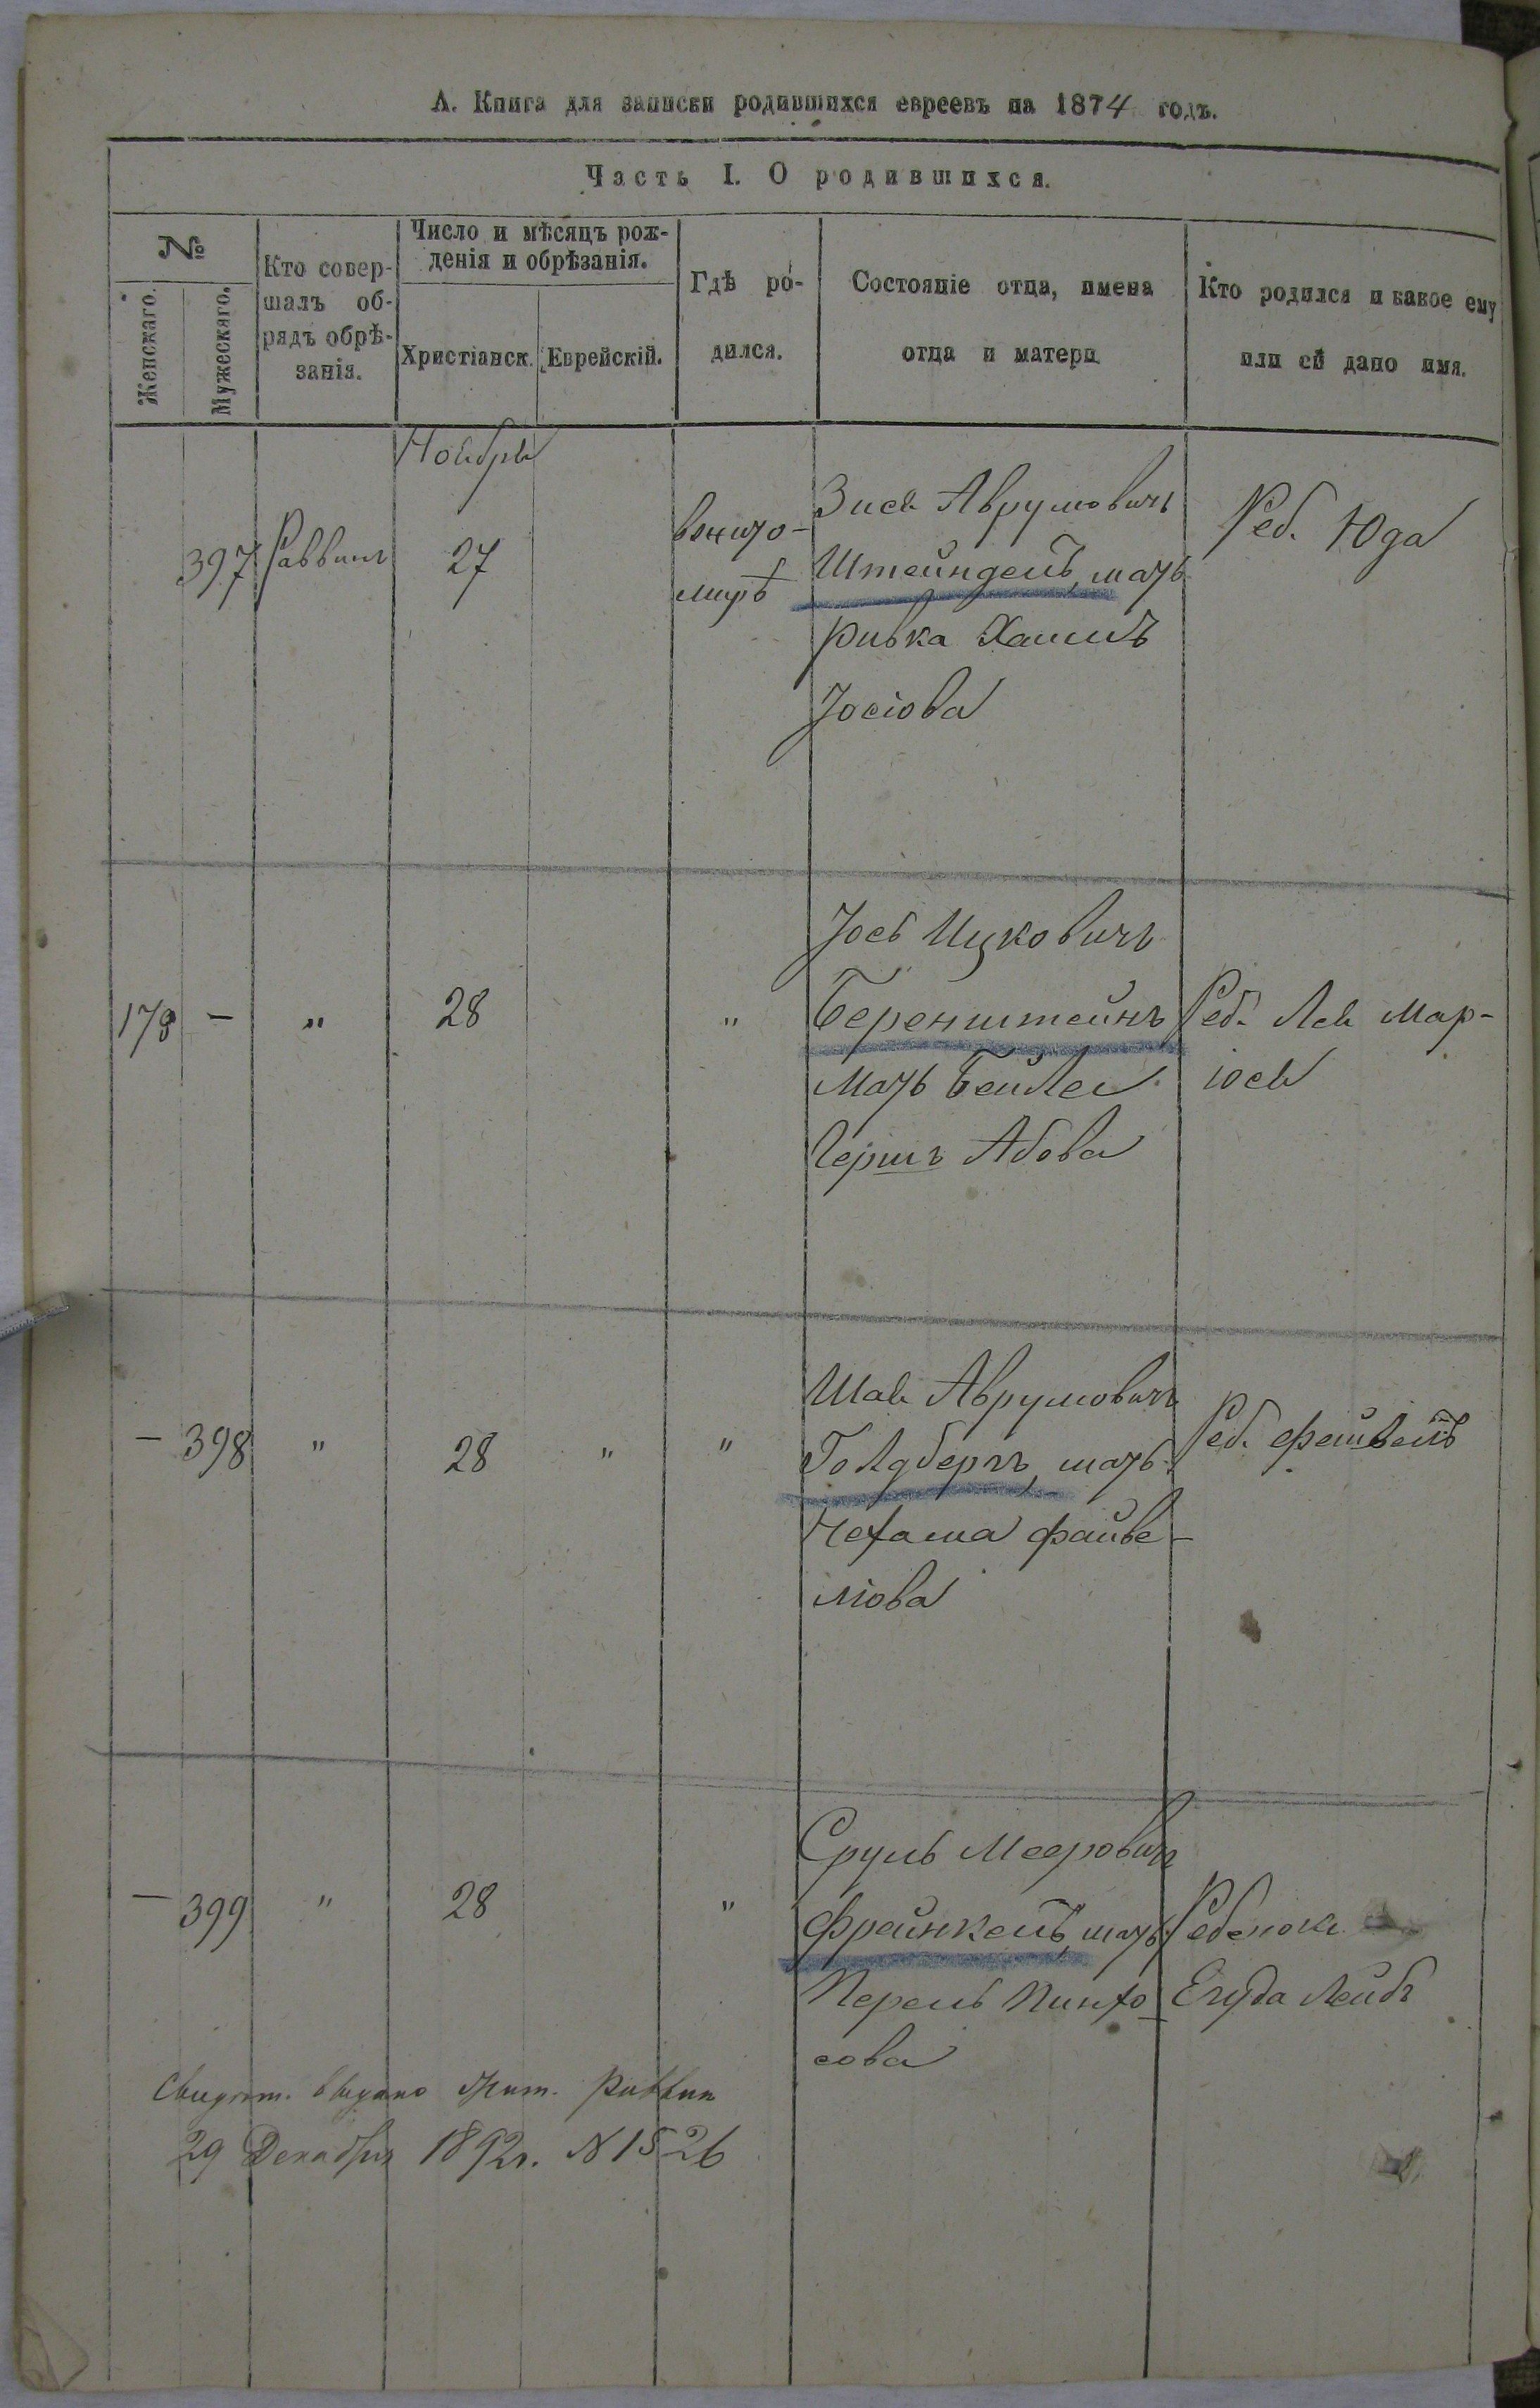 А. Книга для записки родившихся евреевъ на 1874 годъ.
Часть I. О родившихся.
№
Женскаго.
Мужескаго.
Кто совер-
шалъ об-
рядъ обрѣ-
занія.
Число и мѣсяцъ рож-
денія и обрѣзанія.
Христіанск.
Еврейскій.
Гдѣ ро-
дился.
Состояніе отца, имена
отца и матери.
Кто родился и какое ему
или ей дано имя.
Ноября
397
Раввинъ
27
вжито-
мирѣ
Зися Аврумовичъ
Штейндель, мать
Ривка Хаимъ
Josioва
Реб. Юда
178 — „ 28 „
Јось Ицковичъ
Беренштейнъ
мать Бейля
Гершъ Абова
Реб. Лея Мар-
іося
— 398 „ 28 „ „
Шая Аврумовичъ
Голдбергъ, мать
Нехама Файве-
ліова
Реб. Файвель
— 399 „ 28 „
Сруль Мееровичъ
Френкель, мать
Перель Пинхо-
сова
Ребенокъ
Егуда Лейбъ
Свидѣт. выдано Жит. Раввин
29 Декабря 1892г. N 1526